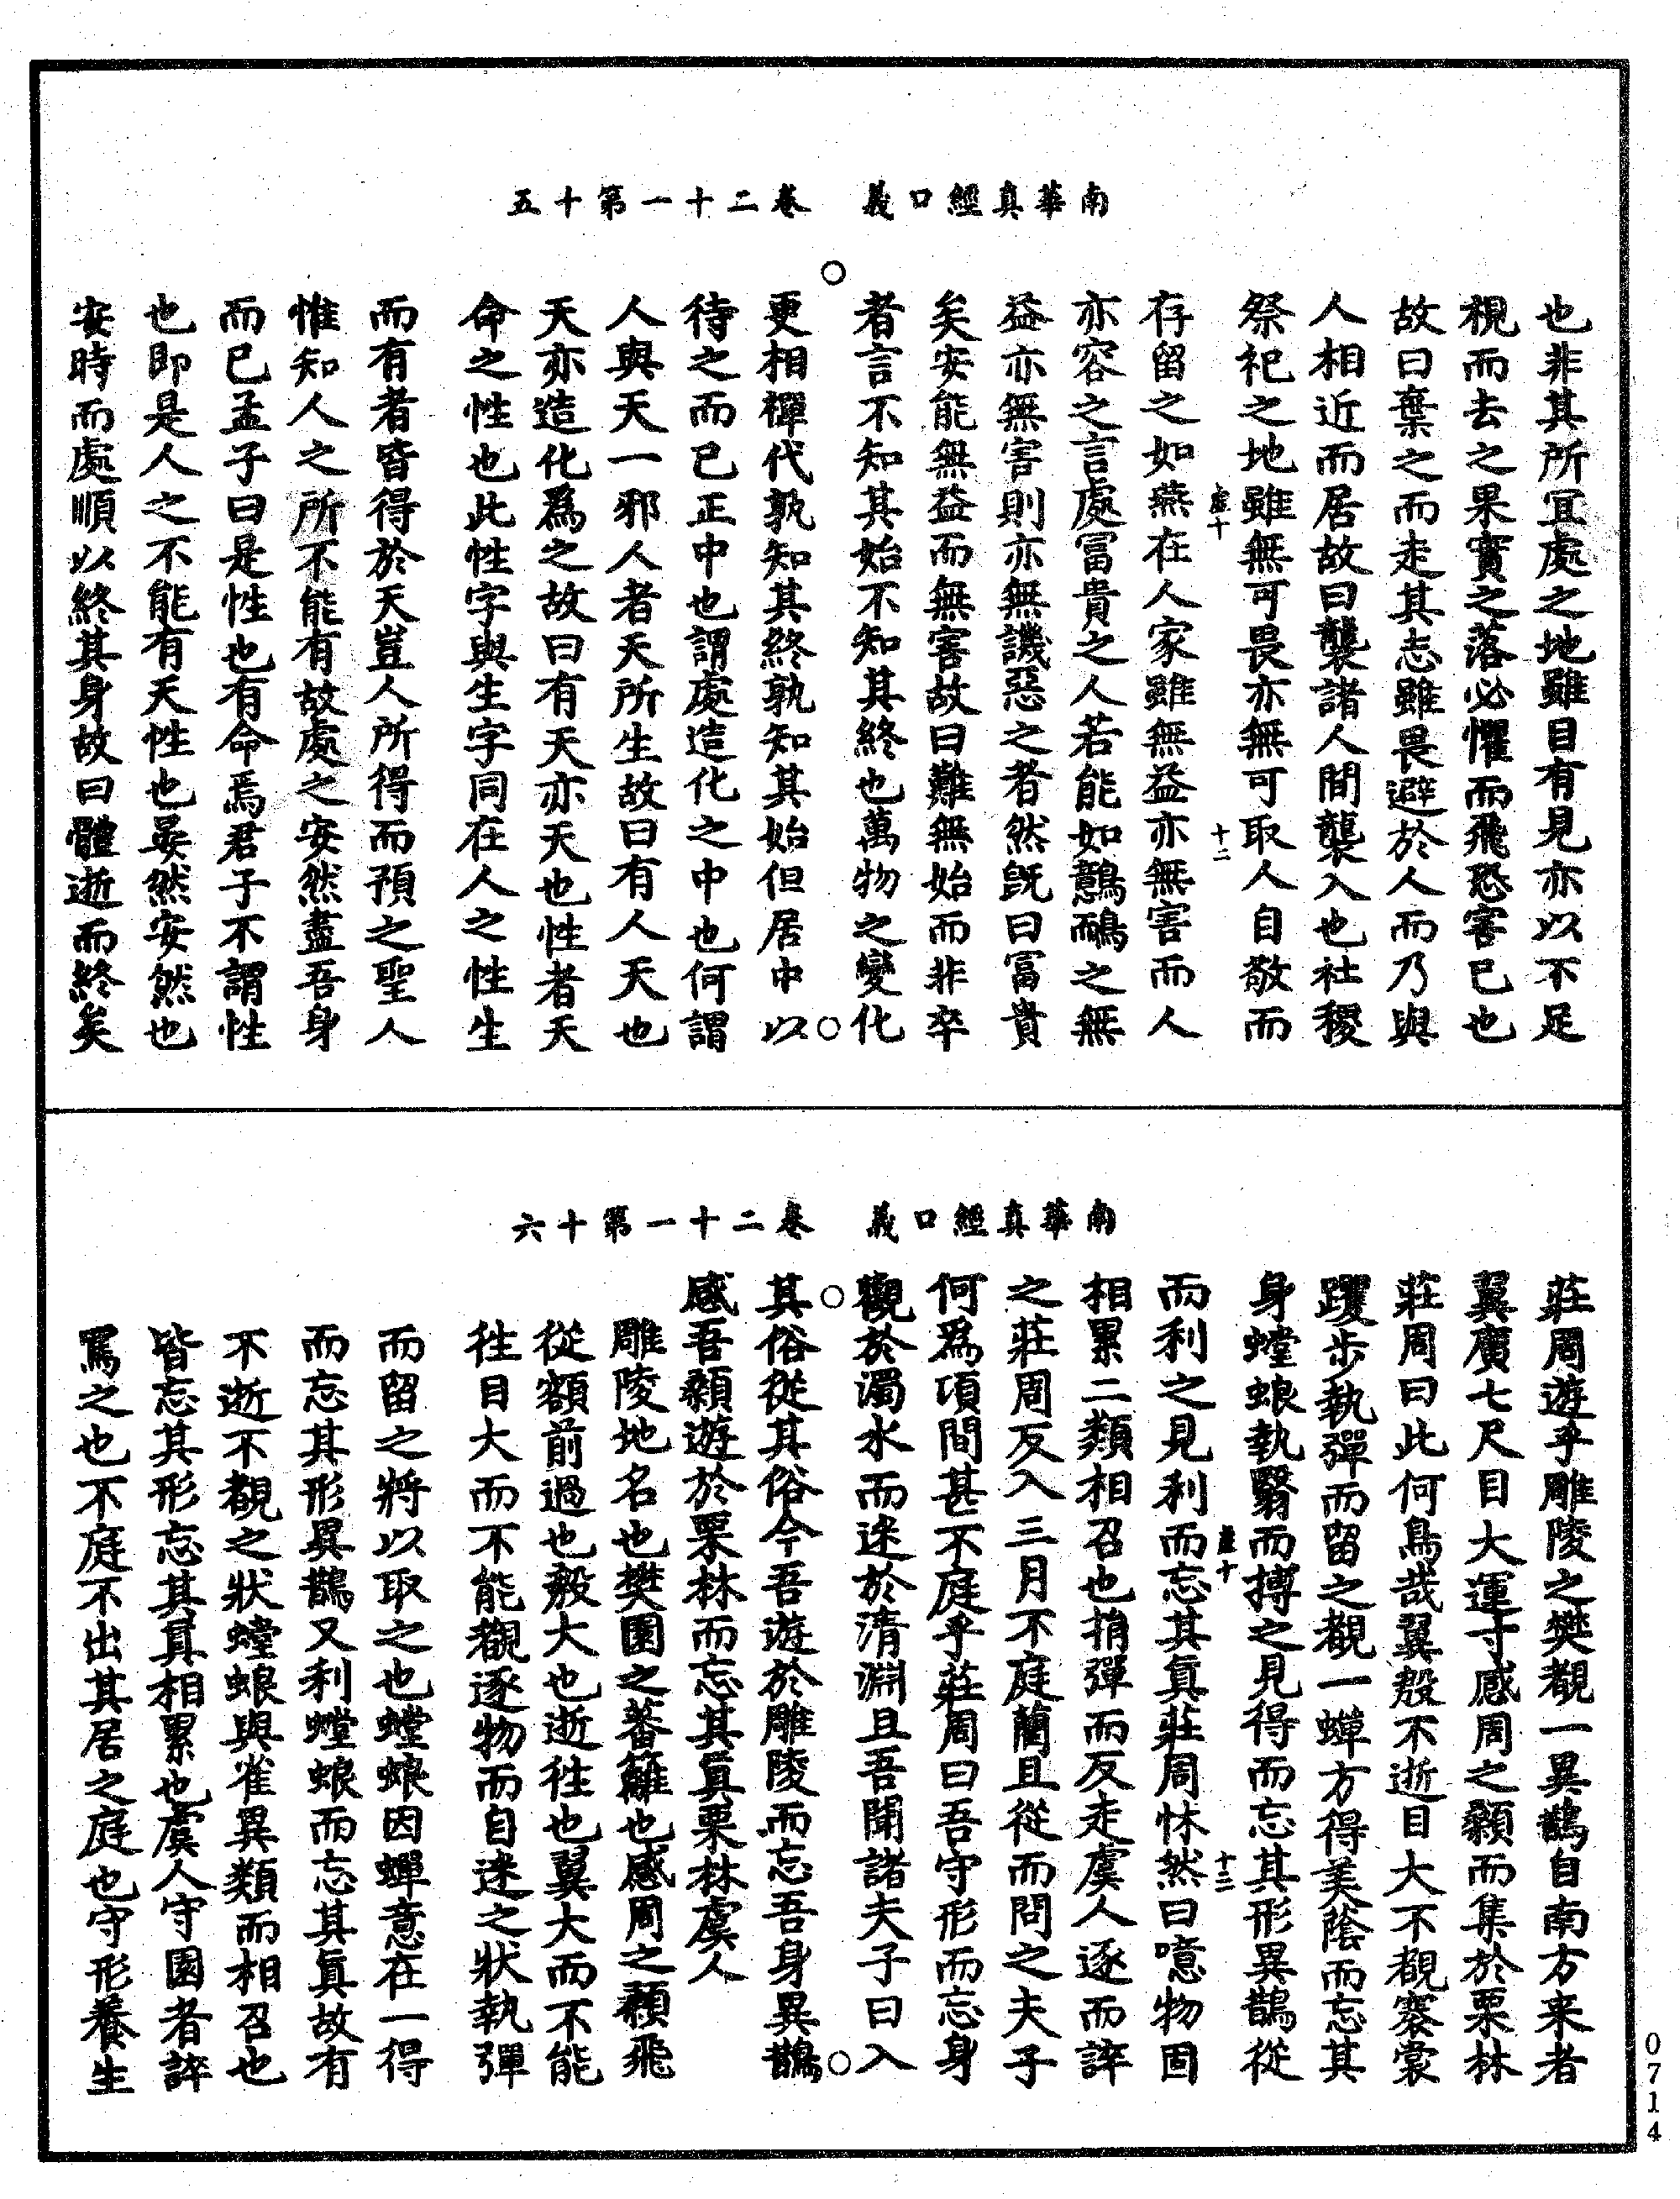 南華真經口義　卷二十一第十五
也非其所宜處之地雖目有見亦以不足
視而去之果實之落必懼而飛恐害已也
故曰棄之而走其志雖畏避於人而乃與
人相近而居故曰襲諸人間襲入也社稷
祭祀之地雖無可畏亦無可取人自敬而
虛十　十二
存留之如燕在人家雖無益亦無害而人
亦容之言處冨貴之人若能如鷾鴯之無
益亦無害則亦無譏惡之者然旣曰冨貴
矣安能無益而無害故曰難無始而非卒
者言不知其始不知其終也萬物之變化
更相禪代孰知其終孰知其始但居中以
待之而已正中也謂處造化之中也何謂
人與天一邪人者天所生故曰有人天也
天亦造化爲之故曰有天亦天也性者天
命之性也此性字與生字同在人之性生
而有者皆得於天豈人所得而預之聖人
惟知人之所不能有故處之安然盡吾身
而已孟子曰是性也有命焉君子不謂性
也即是人之不能有天性也晏然安然也
安時而處順以終其身故曰體逝而終矣
南華真經口義　卷二十一第十六
莊周遊乎雕陵之樊覩一異鵲自南方来者
翼廣七尺目大運寸感周之顙而集於栗林
莊周曰此何鳥哉翼殷不逝目大不覩褰裳
躩步執彈而留之覩一蟬方得美蔭而忘其
身螳蜋執翳而搏之見得而忘其形異鵲從
虛十　十三
而利之見利而忘其真莊周怵然曰噫物固
相累二類相召也捐彈而反走虞人逐而誶
之莊周反入三月不庭藺且從而問之夫子
何爲頃間甚不庭乎莊周曰吾守形而忘身
觀於濁水而迷於清淵且吾聞諸夫子曰入
其俗從其俗今吾遊於雕陵而忘吾身異鵲
感吾顙遊於栗林而忘其真栗林虞人
雕陵地名也樊園之蕃籬也感周之顙飛
從額前過也殷大也逝徃也翼大而不能
徃目大而不能覩逐物而自迷之狀執彈
而留之將以取之也螳蜋因蟬意在一得
而忘其形異鵲又利螳蜋而忘其真故有
不逝不覩之狀螳蜋與雀異類而相召也
皆忘其形忘其真相累也虞人守園者誶
罵之也不庭不出其居之庭也守形養生
0714